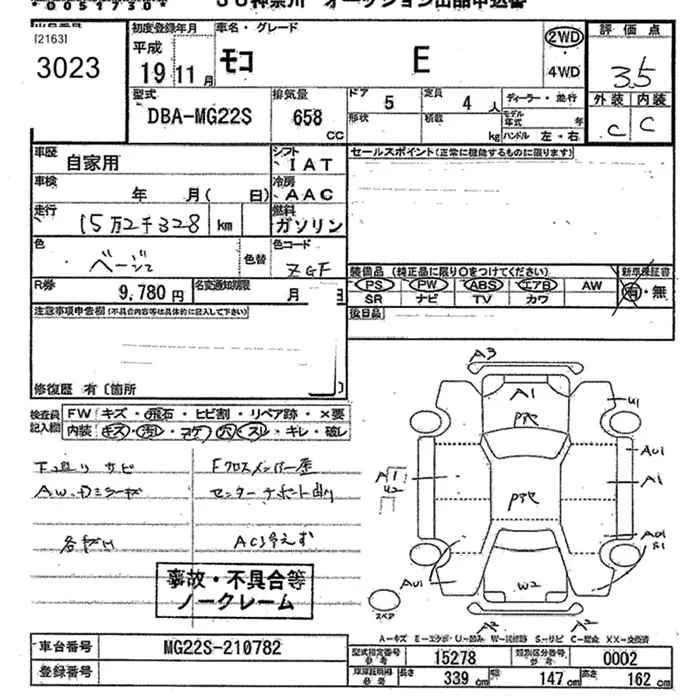 JU神奈川 オークション出品申込書
[2163]
3023
初度登録年月
平成
19 11 月
車名・グレード
モコ E
2WD
4WD
評価点
3.5
外装 内装
C C
型式
DBA-MG22S
排気量
658
CC
ドア 5
形状
定員 4 人
積載 kg
ディーラー・並行
モデル年式 年
ハンドル 左・右
車歴 自家用
シフト IAT
車検 年 月( 日)
冷房 AAC
走行 15万2千328 km
燃料 ガソリン
色 ベージュ
色替
色コード ZGF
R券 9,780 円
名変通知期限 月 日
セールスポイント(正常に機能するものに限ります)
装備品 (純正品に限り○をつけてください)
新車保証書
PS PW ABS エアB AW
SR ナビ TV カワ
有・無
後日品
注意事項申告欄(不具合内容等は具体的に記入して下さい)
修復歴 有〔箇所
検査員記入欄
FW キズ・飛石・ヒビ割・リペア跡・×要
内装 キズ・汚レ・コゲ・穴・スレ・キレ・破レ
下廻りサビ
Fクロスメンバー歪
A.W.Dミラーキズ
センターサポート曲り
ACヨ冷えず
事故・不具合等
ノークレーム
A3
A1
U1
AU1
A1
A1
U2
AU1
W2
スペア
A-キズ E-エクボ U-凹み W-補修跡 S-サビ C-腐食 XX-交換済
車台番号 MG22S-210782
登録番号
型式指定番号 参考 15278
類別区分番号 参考 0002
車庫証明用 参考
長さ 339 cm
幅 147 cm
高さ 162 cm